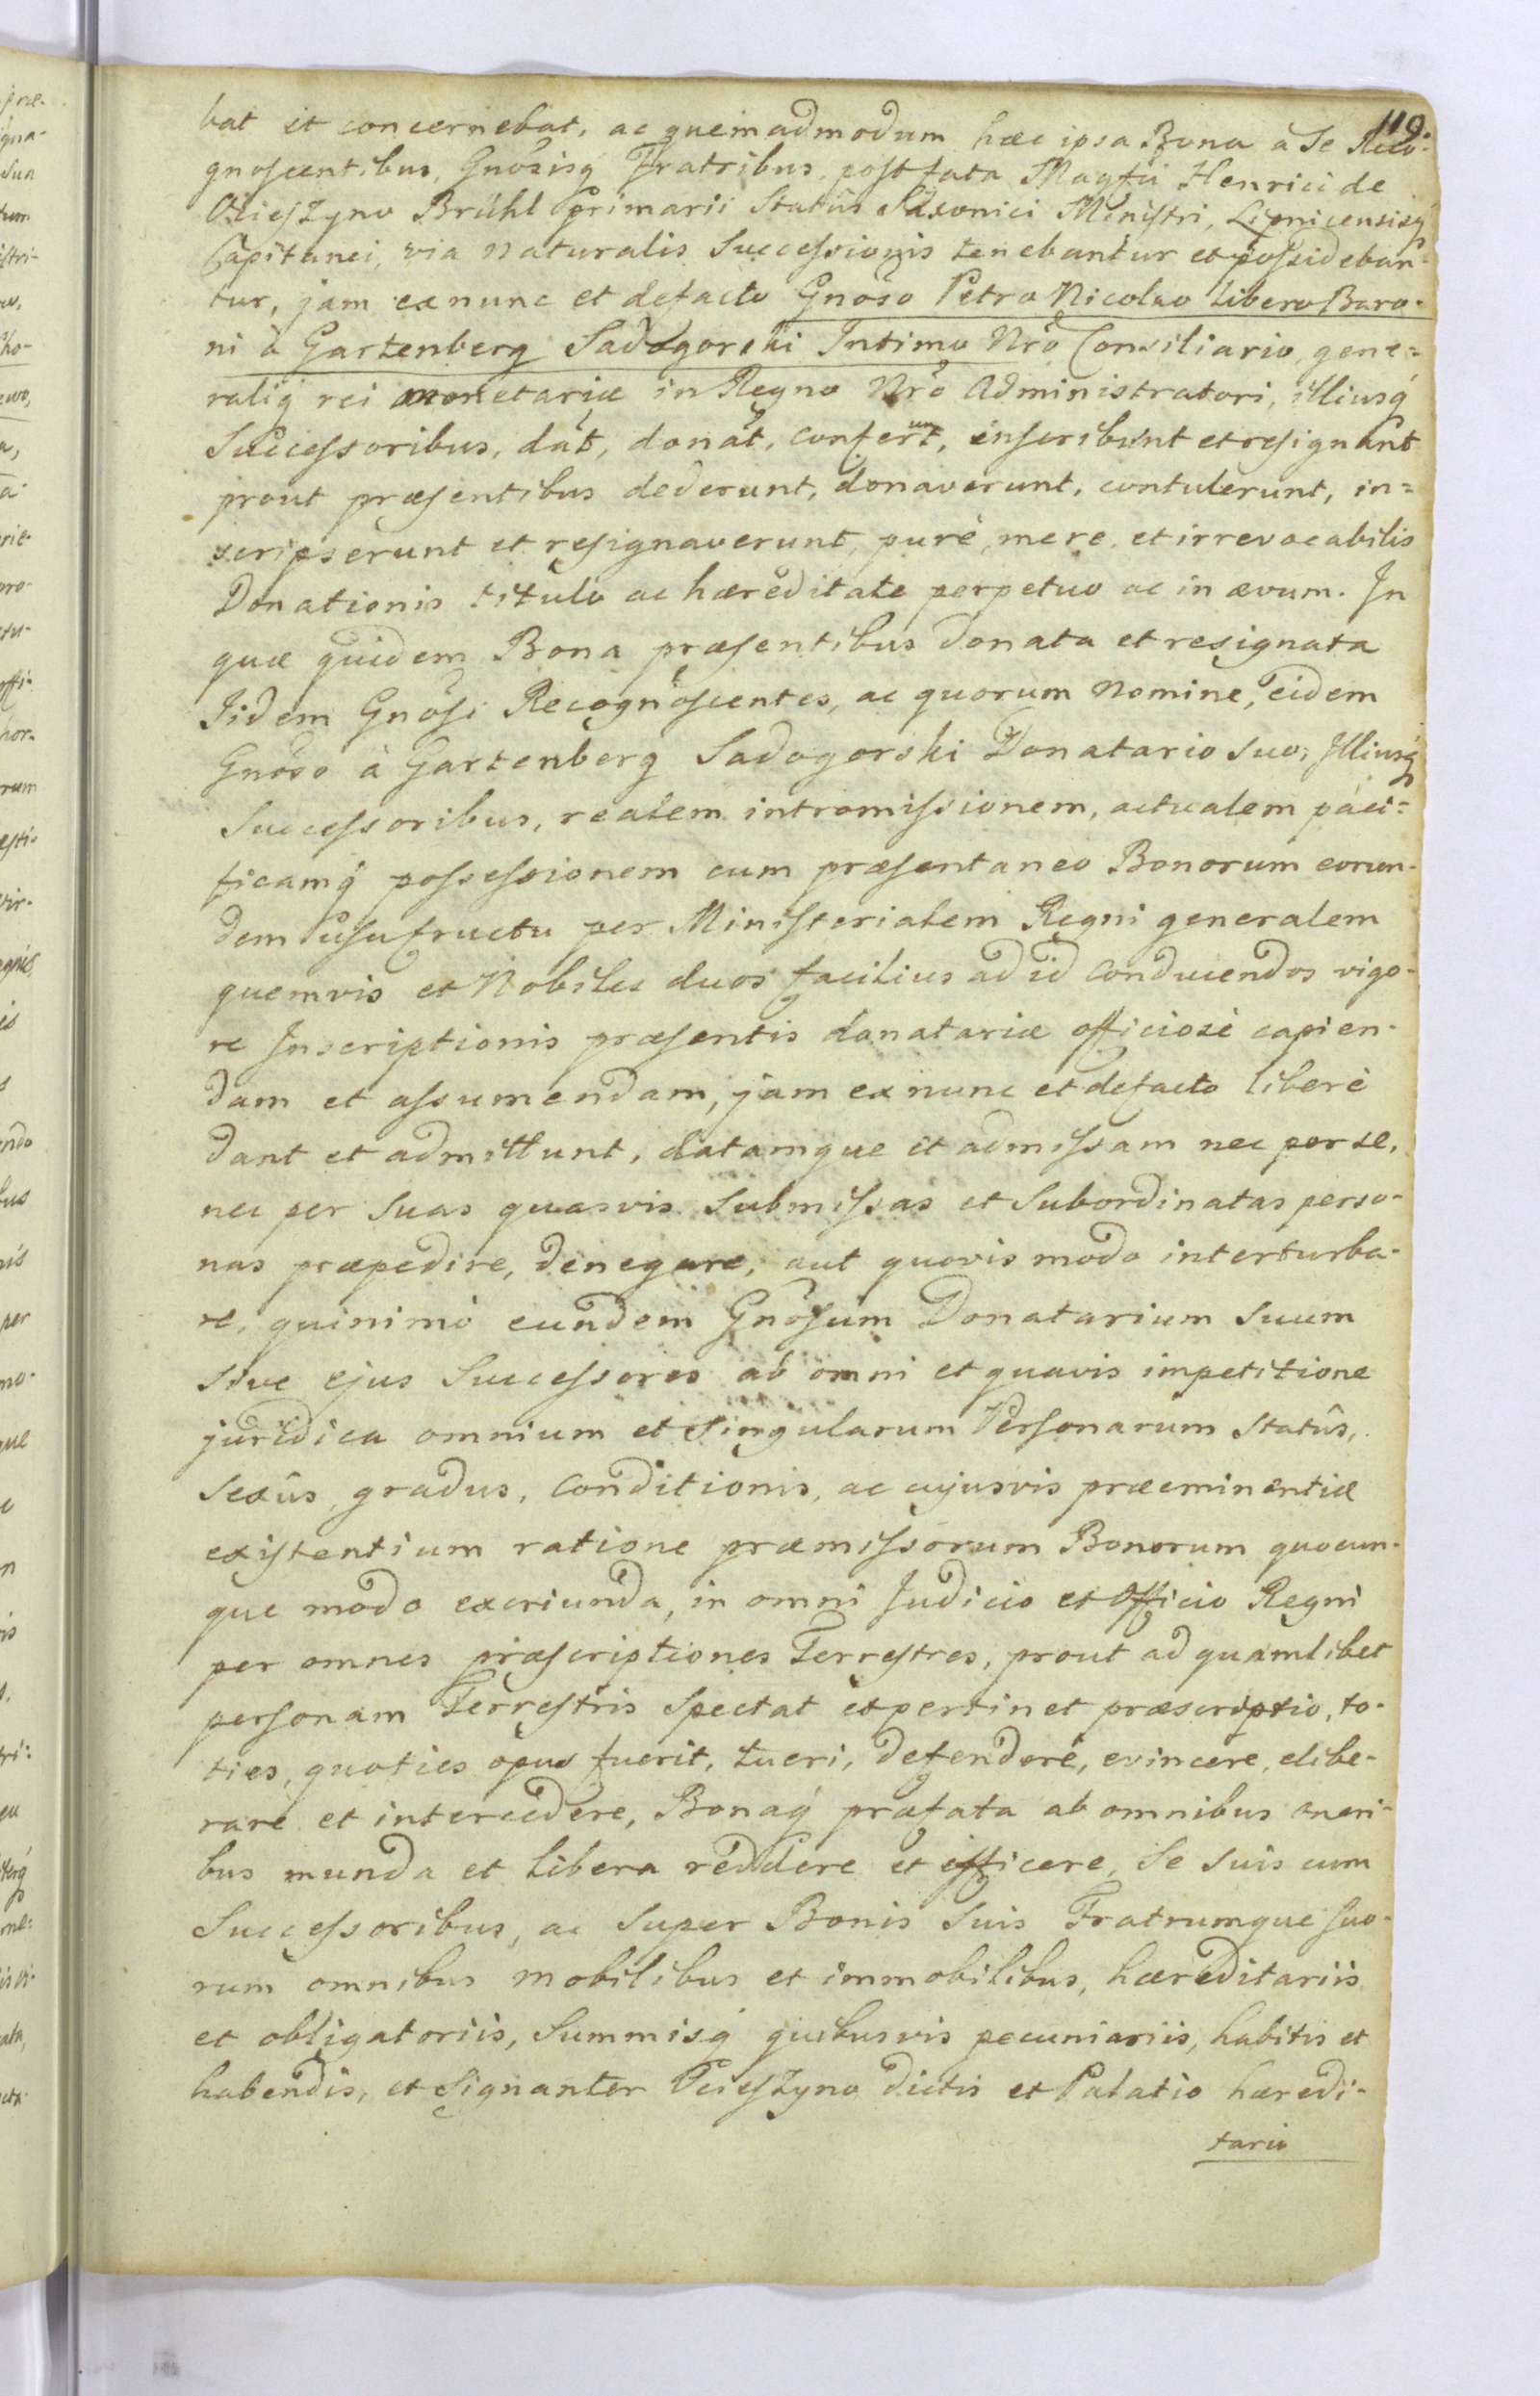 119.
bat et concernebat, ac quemadmodum hæc ipsa Bona a Se Reco-
gnoscentibus, Gnosisq́ Fratribus, post fata Magfci Henrici de
Ocieszyno Brühl primarii Statûs Saxonici Ministri, Lipnicensisq́
Capitanei, via naturalis Successionis tenebantur et possideban-
tur, jam ex nunc et defacto Gnoso Petro Nicolao Libero Baro-
ni à Gartenberg Sadogorski Intimo Nro Consiliario, gene=
raliq́ rei monetariæ in Regno Nro Administratori, illiusq́
Successoribus, dat, donat, conferunt, inscribunt et resignant
prout præsentibus dederunt, donaverunt, contulerunt, in=
scripserunt et resignaverunt, purè, mere, et irrevocabilis
Donationis titulo ac hæreditate perpetuo ac in ævum. In
quæ quidem Bona præsentibus donata et resignata
Iidem Gnosi Recognoscentes, ac quorum Nomine, eidem
Gnoso à Gartenberg Sadogorski Donatario suo, Illiusq́
Successoribus, realem intromissionem, actualem paci=
ficamq́ possessionem cum præsentaneo Bonorum eorun-
dem usufructu per Ministerialem Regni generalem
quemvis et Nobiles duos facilius ad id conducendos vigo-
re Inscriptionis præsentis donatariæ officiosè capien-
dam et assumendam, jam ex nunc et defacto liberè
dant et admittunt, datamque et admissam nec per se,
nec per suas quasvis submissas et subordinatas perso-
nas præpedire, denegare, aut quovis modo interturba-
re, quinimò eundem Gnosum Donatarium suum
sive ejus Successores ab omni et quavis impetitione
juridica omnium et singularum Personarum Statûs,
Sexûs, gradus, conditionis, ac cujusvis præeminentiæ
existentium ratione præmissorum Bonorum quocun-
que modo exoriunda, in omni Judicio et Officio Regni
per omnes præscriptiones Terrestres, prout ad quamlibet
personam Terrestris spectat et pertinet præscriptio, to-
ties, quoties opus fuerit, tueri, defendere, evincere, elibe-
rare et intercedere, Bonaq́ præfata ab omnibus oneri-
bus munda et libera reddere et efficere, Se suis cum
Successoribus, ac super Bonis suis Fratrumque suo-
rum omnibus mobilibus et immobilibus, hæreditariis
et obligatoriis, Summisq́ quibusvis pecuniariis, habitis et
habendis, et signanter Ocieszyno dictis et Palatio hæredi-
tario